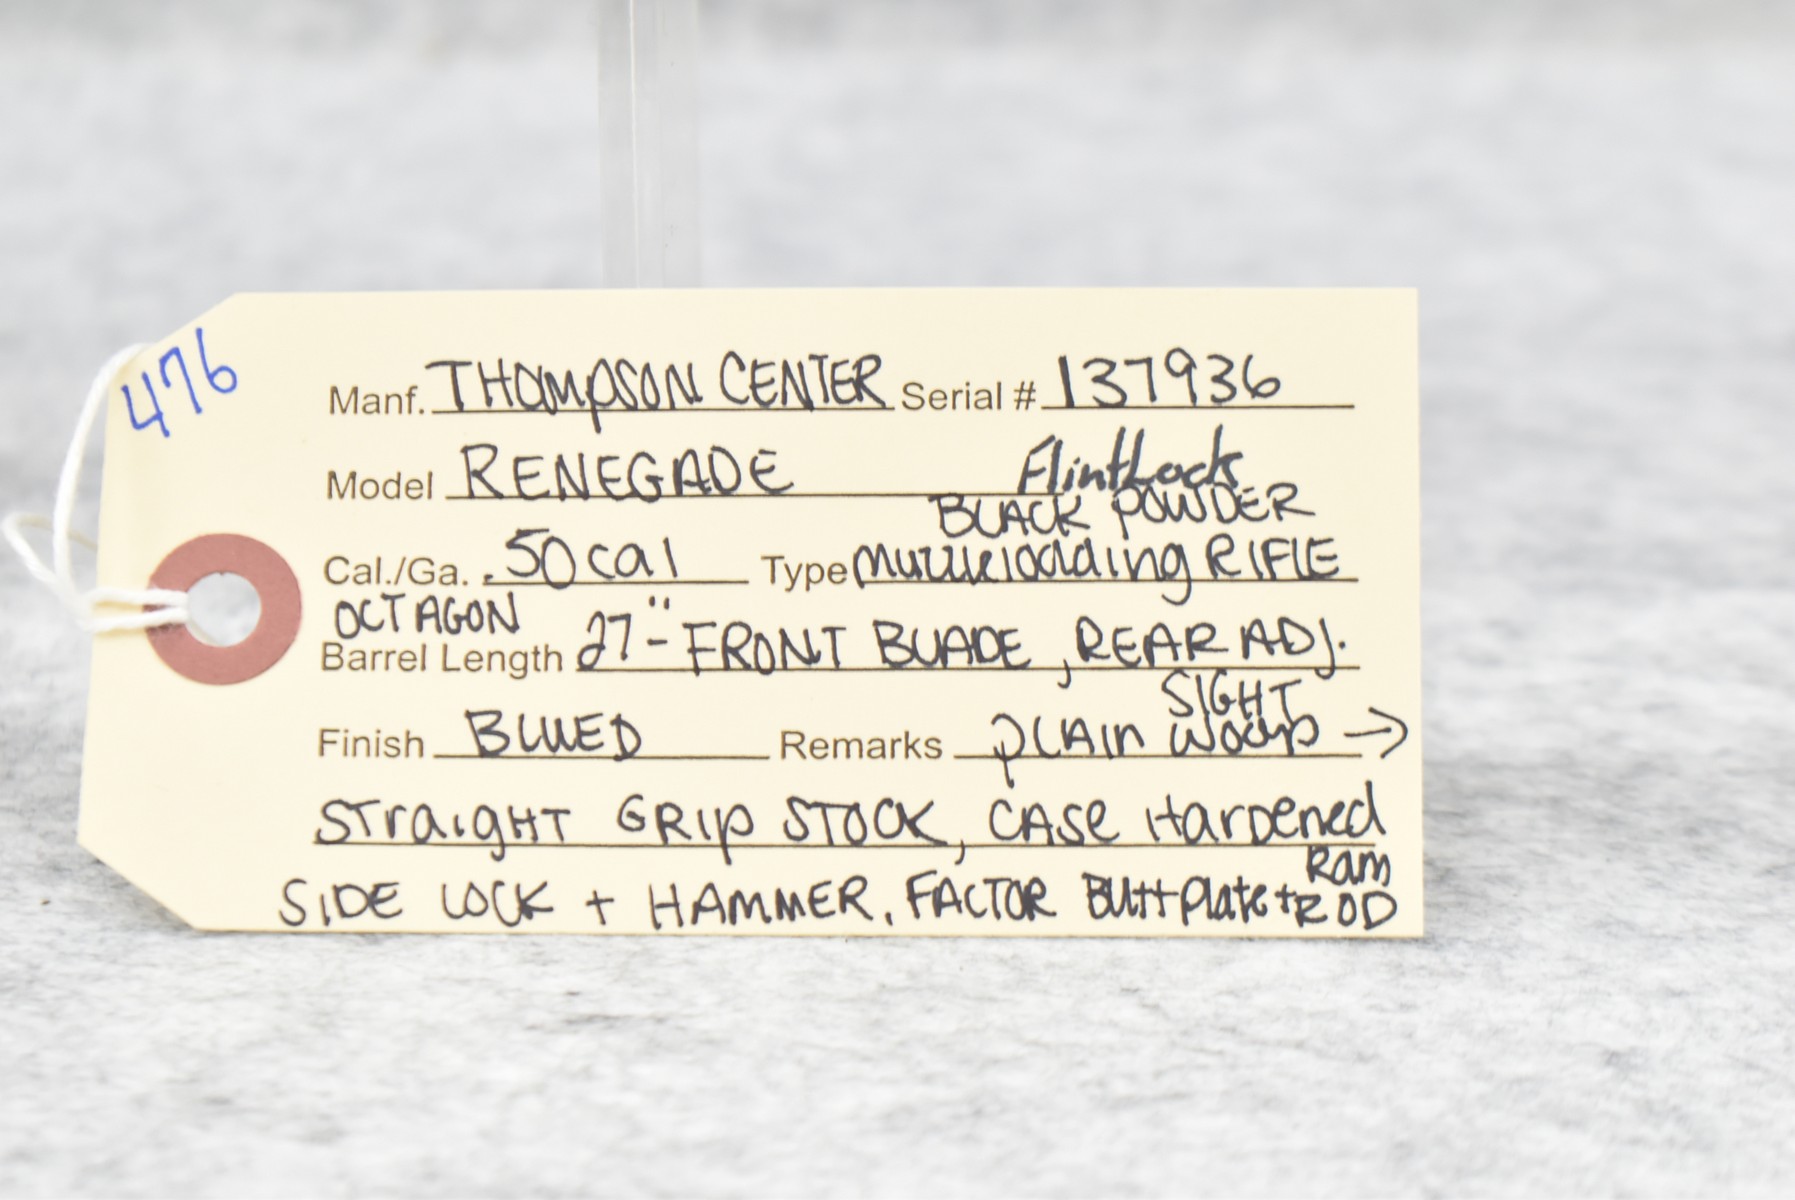 476
Manf. THOMPSON CENTER Serial # 137936
Model RENEGADE FlintLock
BLACK POWDER
Cal./Ga. .50 cal Type Muzzleloadding RIFLE
OCTAGON
Barrel Length 27" - FRONT BLADE, REAR ADJ.
SIGHT
Finish BLUED Remarks PLAIN WOODS →
STraigHT GRIP STOCK, CASE HarDened
SIDE LOCK + HAMMER. FACTOR ButtPlate + Ram
ROD